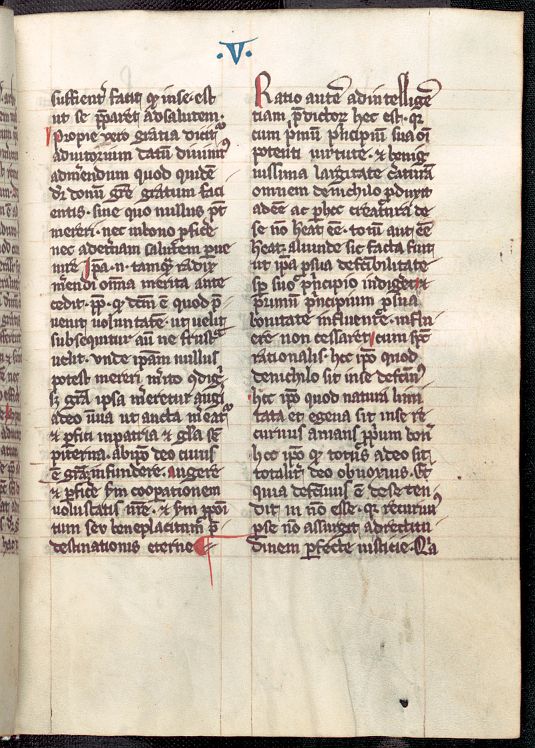 .V.
sufficient᷑ facit qd̕ in se est
ut se p̄paret ad salutem.
Proprie vero gratia dicit᷑
adiutorium datū diuinit᷑
ad merendum quod quidē
dr̄ donū gr̄e gratum faci
entis. sine quo nullus pōt
mereri. nec in bono ꝓfic̄e
nec ad et̄nam salutem perue
nire. Ip̄a .n. tamq̄ radix
m̄endi om̄ia merita ante
cedit. ꝓp̄ qd̕ dictū ē quod p̄
uenit voluntatē. ut velit
subsequitur aūt ne frustᵃ
velit. vnde ipam nullus
potest mereri m̄ito ꝯdigᵒ
sꝫ grā ipsa m̄eretur augeri
a deo in via ut aucta m̄eat᷑
et ꝑfici in patria et gl̄a sē
piterna. ab ip̄o deo cuius
ē grām infundere. augere
et ꝑfic̄e scd̄m cooꝑationem
voluntatis nr̄e. et scd̄m ꝓpoi
tum seu beneplacitum p̄
destinationis eterne
Ratio autē ad intelligē
tiam p̄dictor̄ hec est. qꝛ
cum p̄mū p̄ncipiū sua oī
potenti virtute. et benig
nissima largitate c̄aturā
omnem de nichilo ꝓduxit
ad eē ac ꝑ hec creatura de
se nō heat eē. totū aut eē
heat aliunde sic facta fuit
ut ip̄a ꝑ sua defcibilitate
sp̄ suo p̄ncipio indigeret
primū p̄ncipium ꝑ sua
bonitate influentie influ
ere non cessaret. cum sp̄c
rationalis. hec ip̄o quod
de nichilo sit in se defc̄iuᵒ
hec ip̄o quod natura limi
tata et egena sit in se re
curuus amans ꝓprium bonū
hec ip̄o qd̕ totus a deo sit
totaliter deo obnoxius. Et
quia defc̄iuus ē de se ten
dit in nō esse. qꝛ recuruᵒ
ꝑ se nō assurgit ad rectitu
dinem ꝑfecte iusticie. Qᵃ